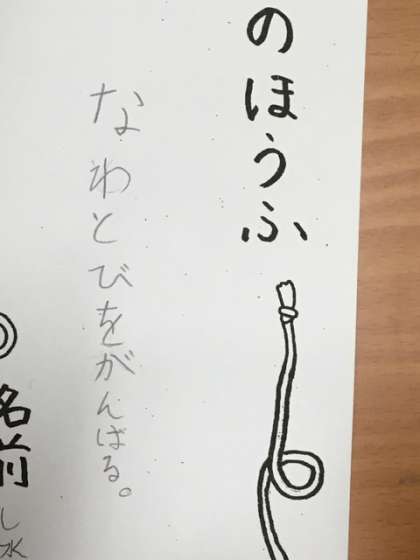 のほうふ
なわとびをがんばる。
名前
し水